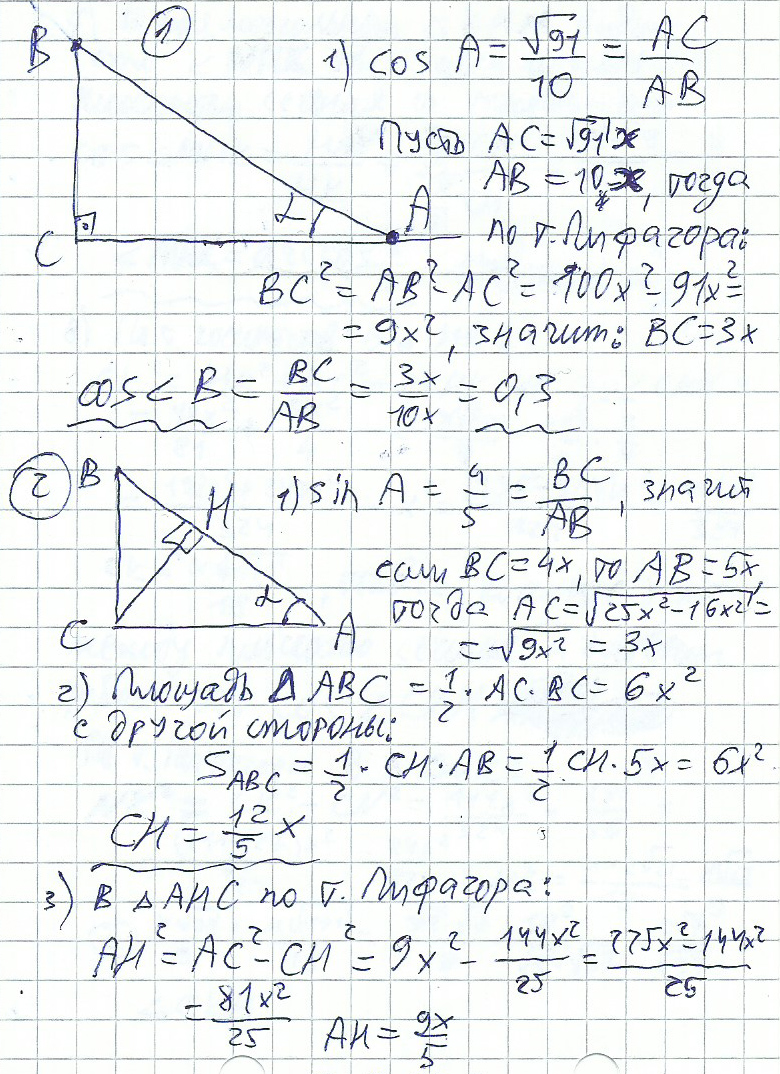 1
B
1) cos A = √91/10 = AC/AB
Пусть AC = √91 x
AB = 10x, тогда
L A
C по т. Пифагора:
BC² = AB² - AC² = 100x² - 91x² =
= 9x², значит: BC = 3x
cos < B = BC/AB = 3x/10x = 0,3
2
B H 1) sin A = 4/5 = BC/AB, значит
если BC = 4x, то AB = 5x,
C α A тогда AC = √25x² - 16x² =
= √9x² = 3x
2) Площадь Δ ABC = 1/2 · AC · BC = 6x²
с другой стороны:
S ABC = 1/2 · CH · AB = 1/2 CH · 5x = 6x²
CH = 12/5 x
3) В Δ AHC по т. Пифагора:
AH² = AC² - CH² = 9x² - 144x²/25 = 225x² - 144x²/25
= 81x²/25 AH = 9x/5